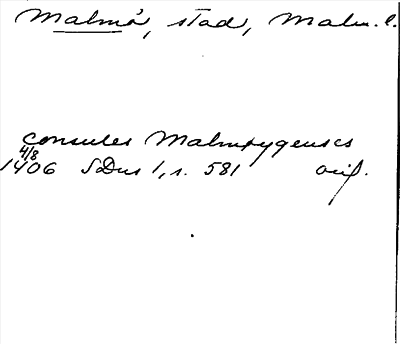 Malmö, stad, Malm. l.
consules Malmøygenses
4/8
1406 SDns 1, s. 581 orig.